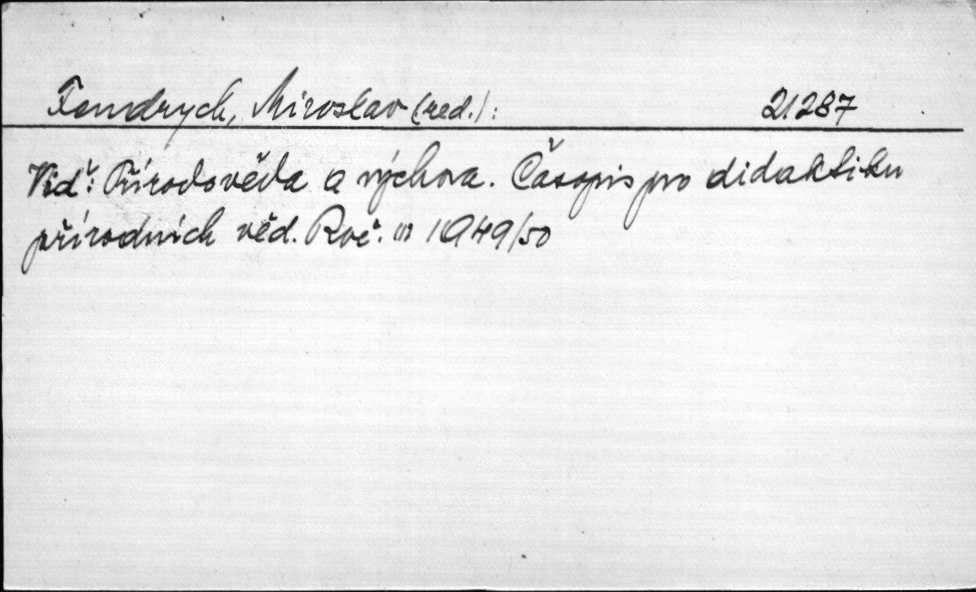 Fendrych, Miroslav (red.): 21287
Viď: Přírodověda a výchova. Časopis pro didaktiku
přírodních věd. Roč. III 1949/50